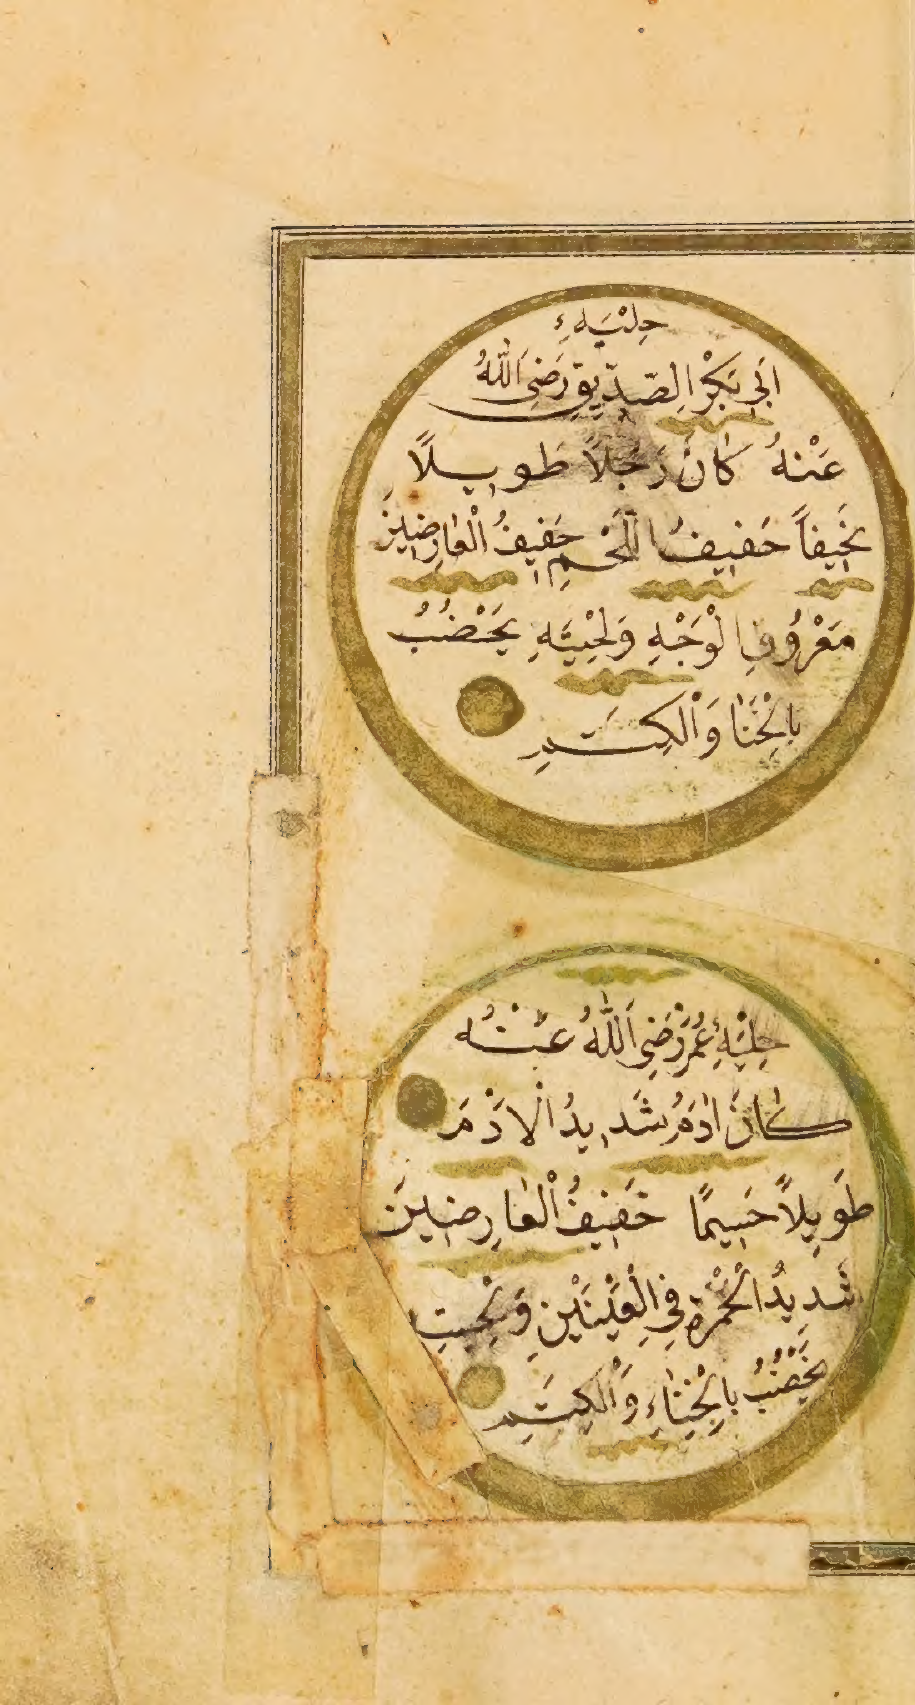 حِلْيَهءِ
اَبِى بَكْرِ الصِّدِّيقِ رَضِىَ اللّٰهُ
عَنْهُ كَانَ رَجُلاً طَوِيلاً
نَحِيفاً خَفِيفُ اللَّحْمِ خَفِيفُ الْعَارِضِينَ
مَعْرُوفِ الْوَجْهِ وَلِحْيَتِهِ يَخْضُبُ
بِالْحِنَّا وَالْكَتَمِ
حِلْيَهءِ عُمَرْ رَضِىَ اللّٰهُ عَنْهُ
كَانَ اٰدَمُ شَدِيدُ الْاَدْمَ
طَوِيلاً جَسِيمًا خَفِيفُ الْعَارِضِينَ
شَدِيدُ الْحُمْرَةِ فِى الْعَيْنَيْنِ وَلِحْيَتِ
يَخْضُبُ بِالْحِنَّاءِ وَالْكَتَمِ